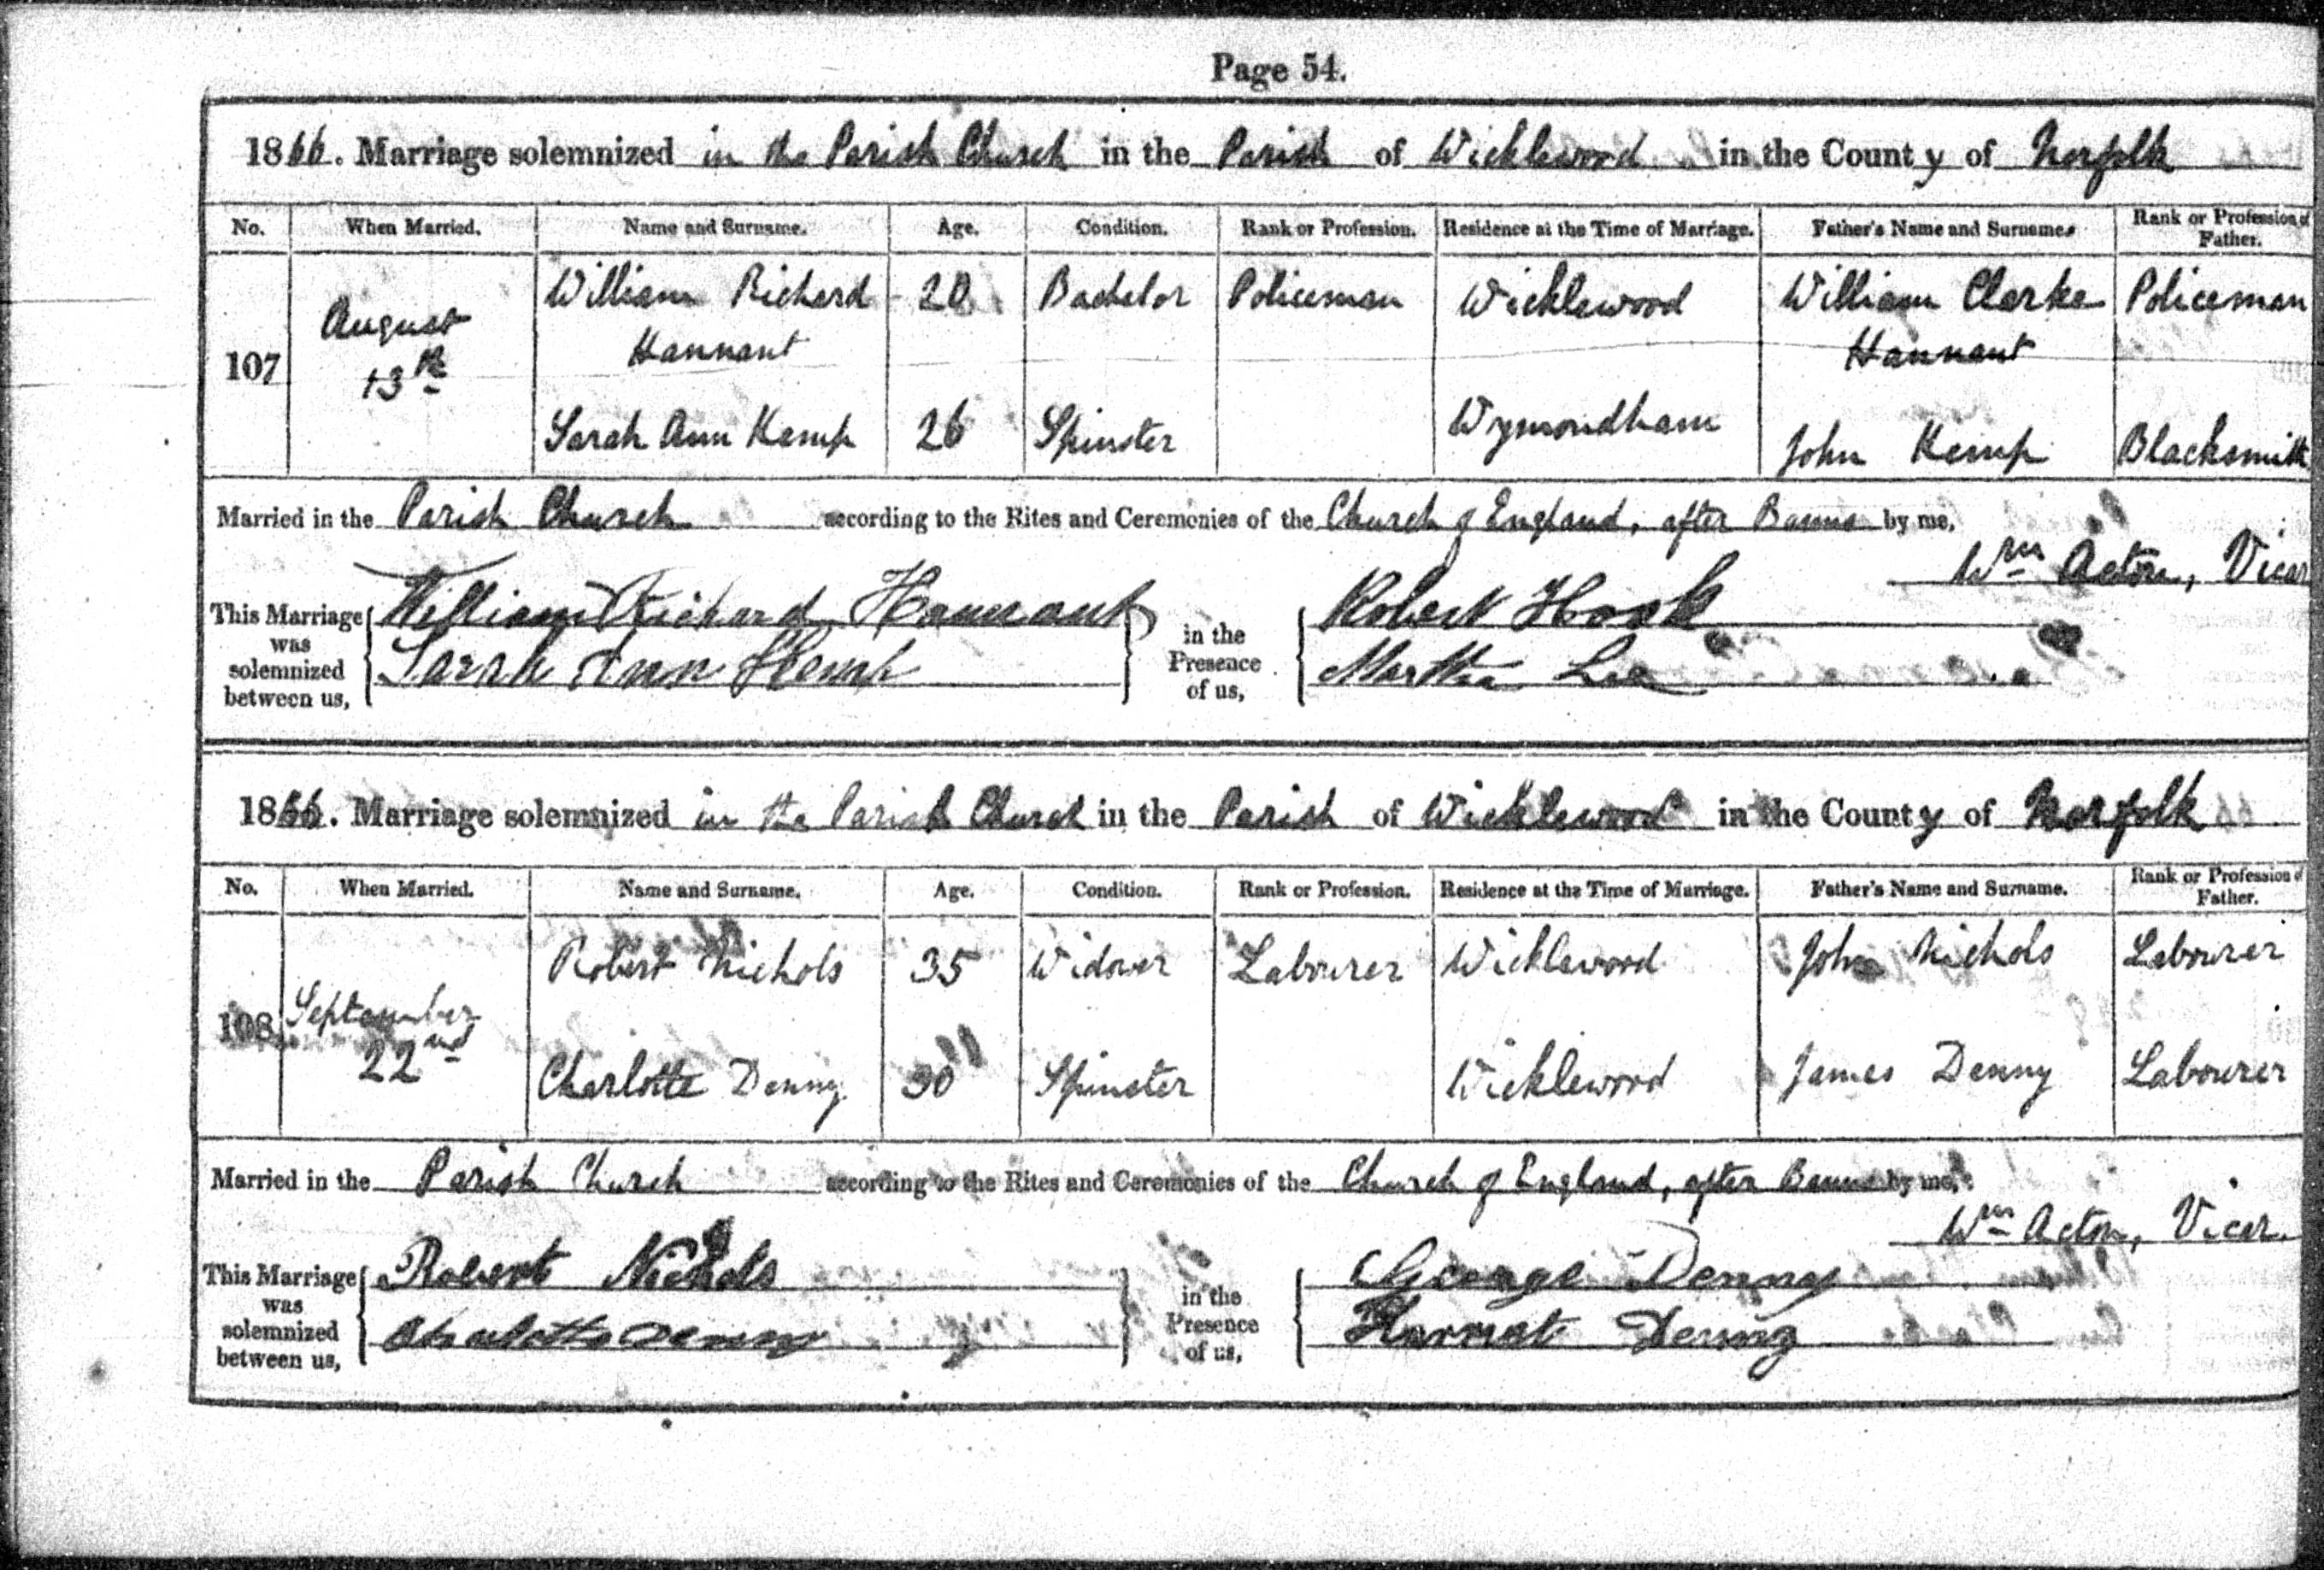 Page 54.
1866. Marriage solemnized in the Parish Church in the Parish of Wicklewood in the County of Norfolk
No. When Married. Name and Surname. Age. Condition. Rank or Profession. Residence at the Time of Marriage. Father's Name and Surname. Rank or Profession of Father.
107 August 13th William Richard Hannant 20 Bachelor Policeman Wicklewood William Clarke Hannant Policeman
Sarah Ann Kemp 26 Spinster Wymondham John Kemp Blacksmith
Married in the Parish Church according to the Rites and Ceremonies of the Church of England, after Banns by me,
Wm Acton, Vicar
This Marriage was solemnized between us, William Richard Hannant in the Presence of us, Robert Hook
Sarah Ann Kemp Martha Lee
1866. Marriage solemnized in the Parish Church in the Parish of Wicklewood in the County of Norfolk
No. When Married. Name and Surname. Age. Condition. Rank or Profession. Residence at the Time of Marriage. Father's Name and Surname. Rank or Profession of Father.
108 September 22nd Robert Nichols 35 Widower Labourer Wicklewood John Nichols Labourer
Charlotte Denny 30 Spinster Wicklewood James Denny Labourer
Married in the Parish Church according to the Rites and Ceremonies of the Church of England, after Banns by me,
Wm Acton, Vicar.
This Marriage was solemnized between us, Robert Nichols in the Presence of us, George Denny
Charlotte Denny Harriet Denny